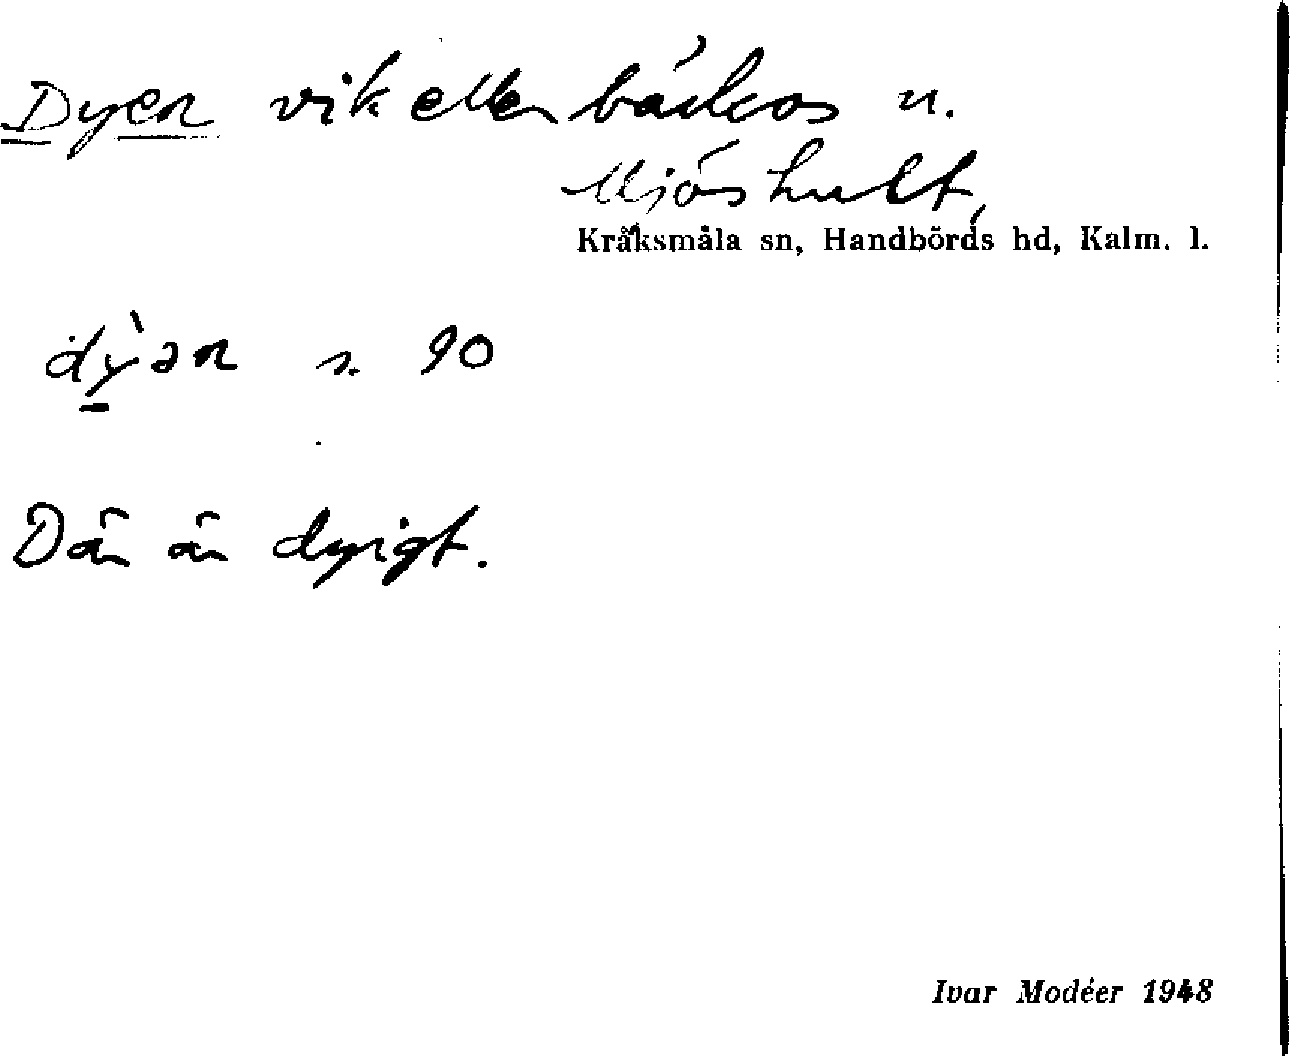 Dyen vik eller bäckos n.
Mjöshult,
Kråksmåla sn, Handbörds hd, Kalm. l.
dỳən s. 90
Där är dyigt.
Ivar Modéer 1948